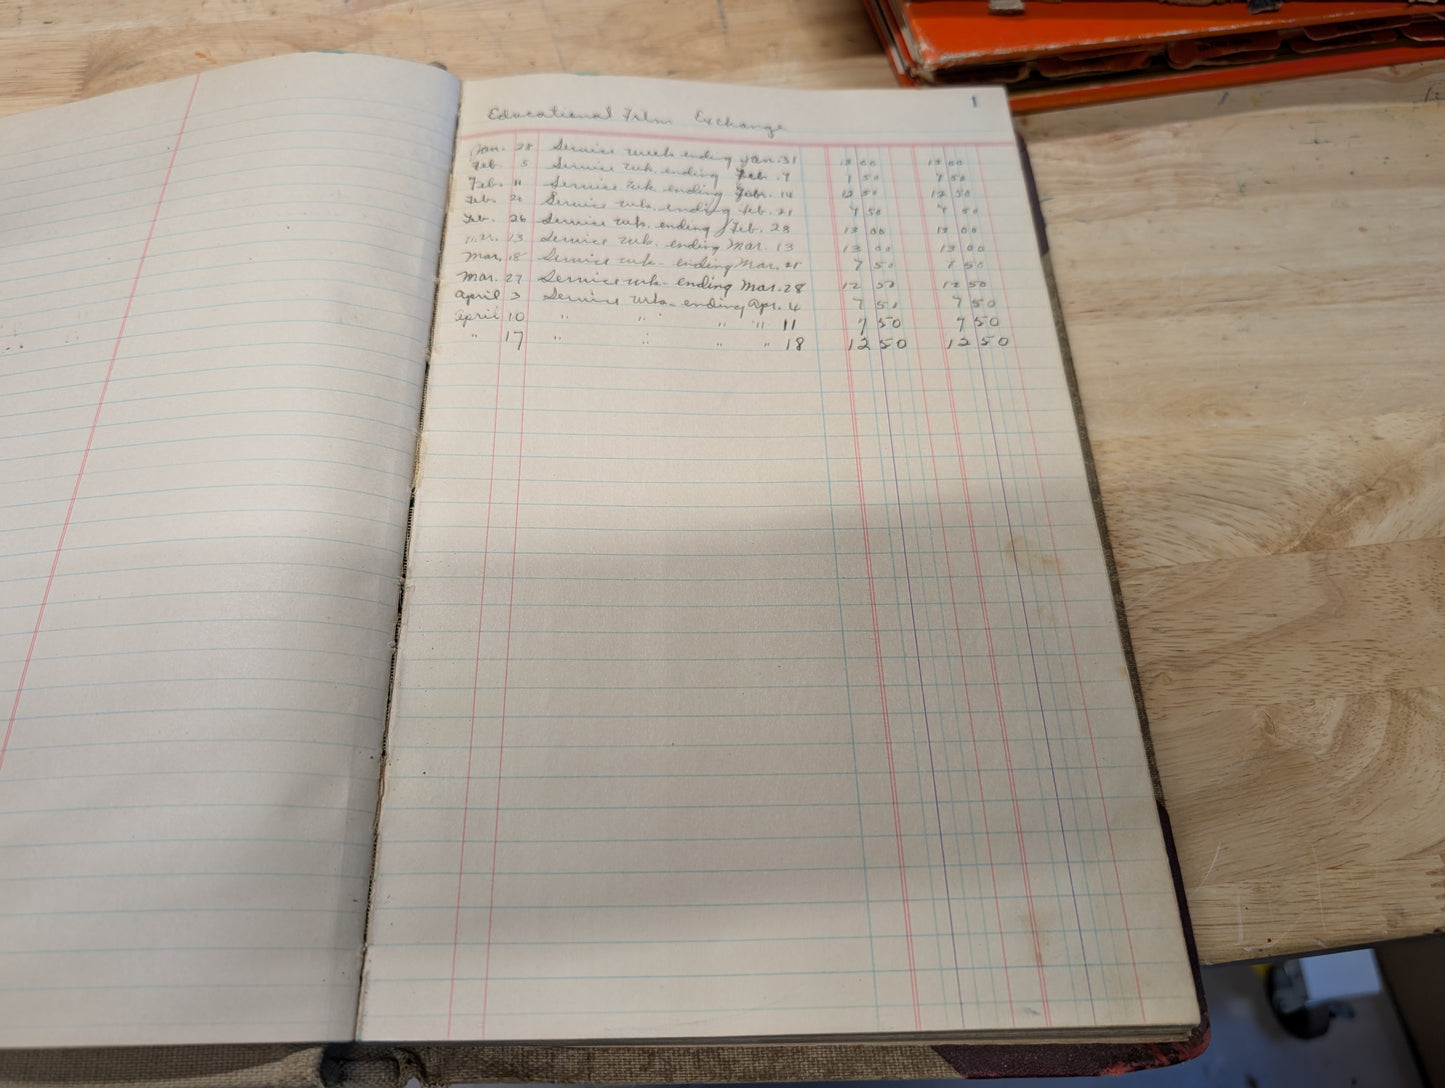 1
Educational Film Exchange
Jan. 28 Service week ending Jan. 31 13 00 13 00
Feb. 5 Service wk. ending Feb. 7 7 50 7 50
Feb. 11 Service wk ending Febr. 14 12 50 12 50
Feb. 20 Service wk. ending Feb. 21 7 50 7 50
Feb. 26 Service wk. ending Feb. 28 13 00 13 00
Mar. 13 Service wk. ending Mar. 13 13 00 13 00
Mar. 18 Service wk - ending Mar. 21 7 50 7 50
Mar. 27 Service wk - ending Mar. 28 12 50 12 50
April 3 Service wk - ending Apr. 4 7 50 7 50
April 10 " " " " 11 7 50 7 50
" 17 " " " " 18 12 50 12 50